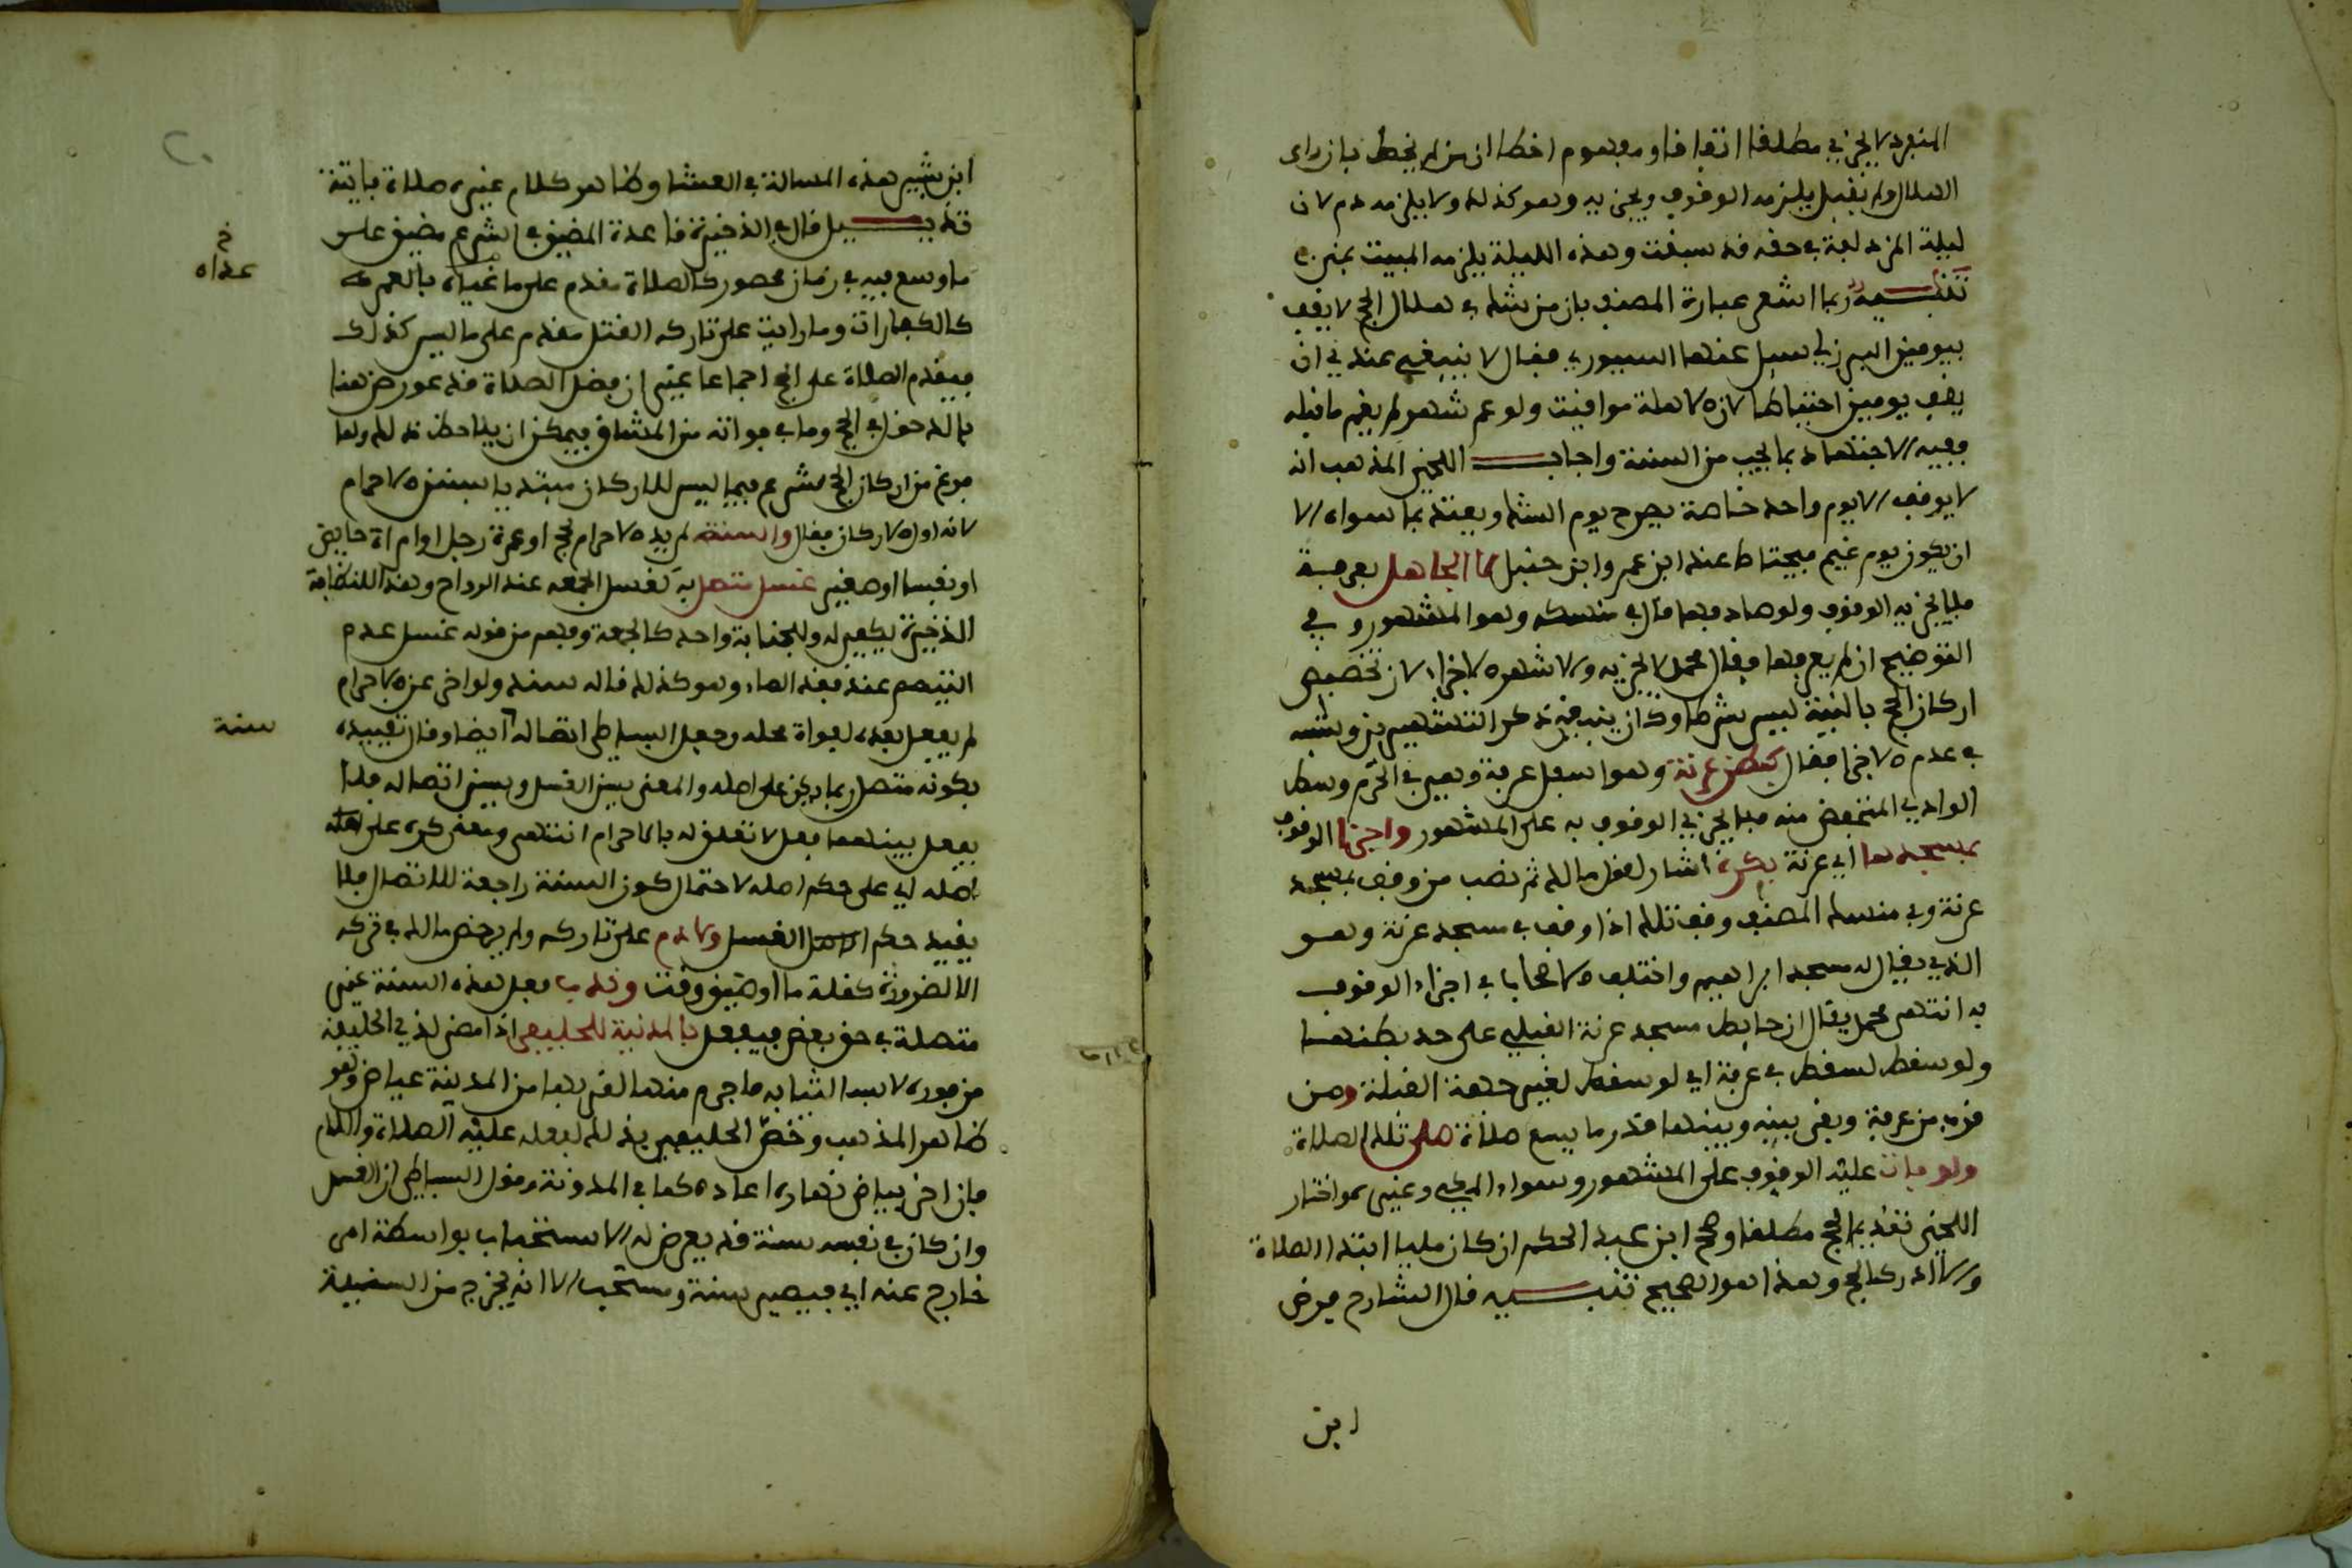 المنفرد لا يجزي مطلقا اتفاقا ومفهوم اخطا ان من لم يخط بان راى
الهلال ولم يقبل يلزمه الوقوف ويجزيه وهو كذلك ولا يلزمه دم لان
ليلة المزدلفة في حقه قد سبقت وهذه الليلة يلزمه المبيت بمنى
تنبيه ربما اشعر عبارة المصنف بان من شك في هلال الحج لا يقف
بيومين البرزلي سيل عنها السيوري فقال لا ينبغي عندي ان
يقف يومين احتياطا لان الاهلة مواقيت ولو عم شهر لم يغم ما قبله
ففيه الاجتهاد بما يجب من السنة واجاب اللخمي المذهب انه
لا يوقف الا يوم واحد خاصة يطرح يوم الشك ويعتد بما سواه الا
ان يكون يوم غيم فيحتاط عند ابن عمر وابن حنبل لا الجاهل بعرفة
فلا يجزيه الوقوف ولو صادفها قال في منسكه وهو المشهور وفي
التوضيح ان لم يعرفها فقال محمد لا يجزيه والاشهر الاجزاء لان تخصيص
اركان الحج بالنية ليس بشرط وكان ينبغي ذكر التشهيرين وشبه
في عدم الاجزا فقال كبطن عرنة وهو اسفل عرفة وهي في الحرم وسط
الوادي المنخفض منه فلا يجزي الوقوف به على المشهور واجزا الوقوف
بمسجدها اي عرنة بكره اشار لقول مالك لم يصب من وقف بمسجد
عرنة وفي منسك المصنف وقف تلك اذا وقف في مسجد عرنة وهو
الذي يقال له مسجد ابراهيم واختلف الاصحاب في اجزاء الوقوف
به انتهى محمد يقال ان حايط مسجد عرنة القبلي على حد بطنها
ولو سقط لسقط في عرفة اي لو سقط لغير جهة القبلة ومن
قرب من عرفة وبقي بينه وبينها قدر ما يسع صلاة صلى تلك الصلاة
ولو فات عليه الوقوف على المشهور وسواء المكي وغيره واختار
اللخمي تقديم الحج مطلقا وصحح ابن عبد الحكم ان كان مليا ابتدا الصلاة
والا ادرك الحج وهذا هو الصحيح تنبيه قال الشارح فرض
ابن
ابن بشير هذه المسالة في العشا وظاهر كلام غيره صلاة فايتة
تذييل قال في الذخيرة قاعدة المضيق في الشرع مضيق على
ما وسع فيه في زمان محصور كالصلاة مقدم على ما غياه بالعمر
خ
عداه
كالكفارات وما رايت على تاركه القتل مقدم على ما ليس كذلك
فيقدم الصلاة على الحج اجماعا غير ان فضل الصلاة قد عورض هنا
بالدخول في الحج وما في فواته من المشاق فيمكن ان يلاحظ ذلك ولما
فرغ من اركان الحج شرع فيما ليس للاركان مبتديا بسنن الاحرام
لانه اول الاركان فقال والسنة لمريد الاحرام بحج او عمرة رجل او امراة حايض
او نفسا او صغير غسل متصل به كغسل الجمعه عند الرواح وهذا للنظافة
الذخيرة يكفي له وللجنابة واحد كالجمعة وفهم من قوله غسل عدم
التيمم عند فقد الماء وهو كذلك قاله سند ولو اخر عن الاحرام
لم يفعل بعده لفوات محله وجعل البساطي اتصاله ايضا وقال تقييده
سنة
بكونه متصل ربما يكن على اصله والمعنى يسن الغسل ويسن اتصاله فلا
يفعل بينهما فعل لا تعلق له بالاحرام انتهى
اصله اي على حكم اصله لاحتمال كون السنة راجعة للاتصال فلا
يفيد حكم الغسل ولا دم على تاركه ولم يرخص مالك في تركه
الا لضرورة كقلة ما او ضيق وقت وندب فعل هذه السنة غير
متصلة في حق بعض فيفعل بالمدنية للحليفي اذا مضى لذي الحليفة
من فوره لابسا ثيابه فاحرم منها لقربها من المدينة عياض وهو
ظاهر المذهب وخص الحليفي بذلك لفعله عليه الصلاة والسلام
فان اخر بياض نهاره اعاده كما في المدونة وقول البساطي ان الغسل
وان كان في نفسه سنة قد يعرض له الاستحباب بواسطة امر
خارج عنه اي فيصير سنة ومستحب الا انه يخرج من السنية